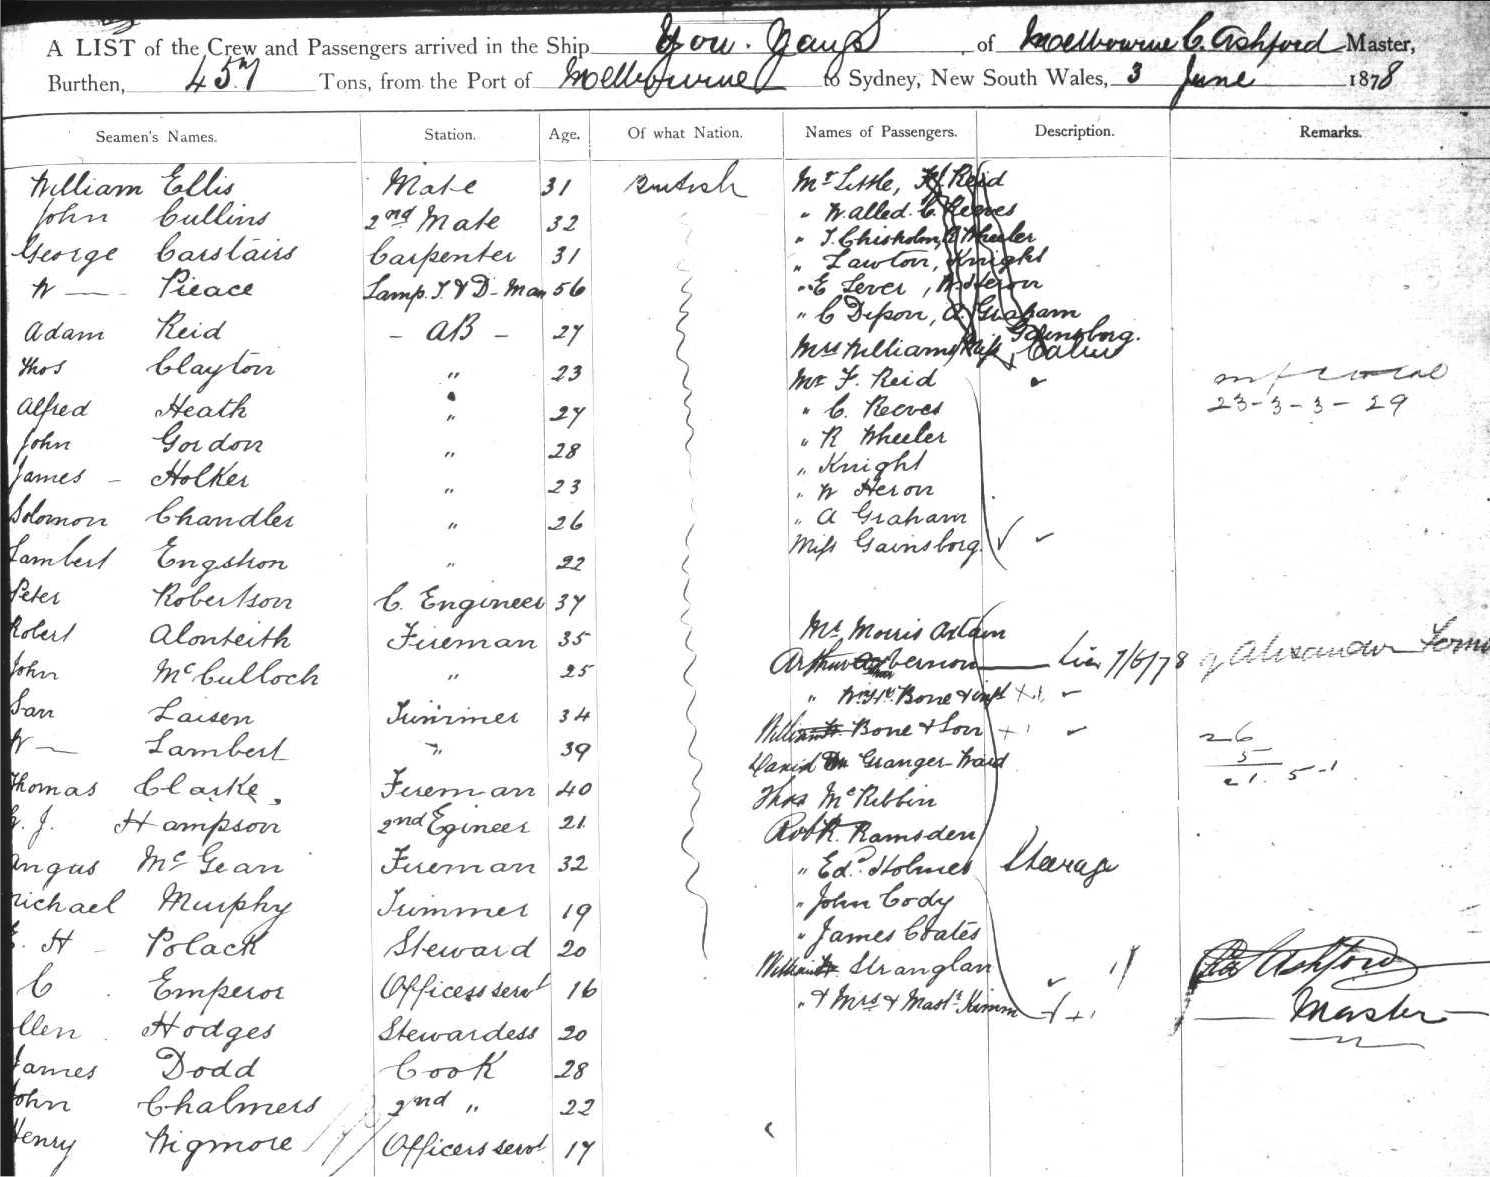 A LIST of the Crew and Passengers arrived in the Ship You Yangs of Melbourne C. Ashford Master,
Burthen, 457 Tons, from the Port of Melbourne to Sydney, New South Wales, 3 June 1878
Seamen's Names. Station. Age. Of what Nation. Names of Passengers. Description. Remarks.
William Ellis Mate 31 British
John Cullins 2nd Mate 32
George Carstairs Carpenter 31
W — Pieace Lamp. T. & D- Man 56
Adam Reid - AB - 27
Thos Clayton " 23
Alfred Heath " 27
John Gordon " 28
James - Holker " 23
Solomon Chandler " 26
Lambert Engstron " 22
Peter Robertson C. Engineer 37
Robert Alonteith Fireman 35
John McCulloch " 25
Laisen Trimmer 34
W — Lambert " 39
Thomas Clarke Fireman 40
G. J. Hampson 2nd Egineer 21
Angus McGean Fireman 32
Michael Murphy Trimmer 19
E. H - Polack Steward 20
C Emperor Officers servt 16
Ellen Hodges Stewardess 20
James Dodd Cook 28
John Chalmers 2nd " 22
Henry Wigmore Officers servt 17
Mr Little, F. Reid
" W. Alled. C. Reeves
" T. Chisholm, R Wheeler
" Lawton, Knight
" E Lever, W Heron
" C Dixon, A. Graham
Gainsborg.
Mrs Williams, Miss
Mr F. Reid
" C. Reeves
" R Wheeler
" Knight
" W Heron
" A Graham
Miss Gainsborg.
Mr Morris
Arthur Vernon
" Bone & inft
William Bone & Son
David Granger Ward
Thos McKibbin
Robt. Ramsden
" Edd. Holmes
" John Cody
" James Coates
William Stranglan
" & Mrs & Mastr. Kimm
7/6/78
Steerage
23-3-3-29
Alexander
26
5
21. 5-1
Ashford
Master